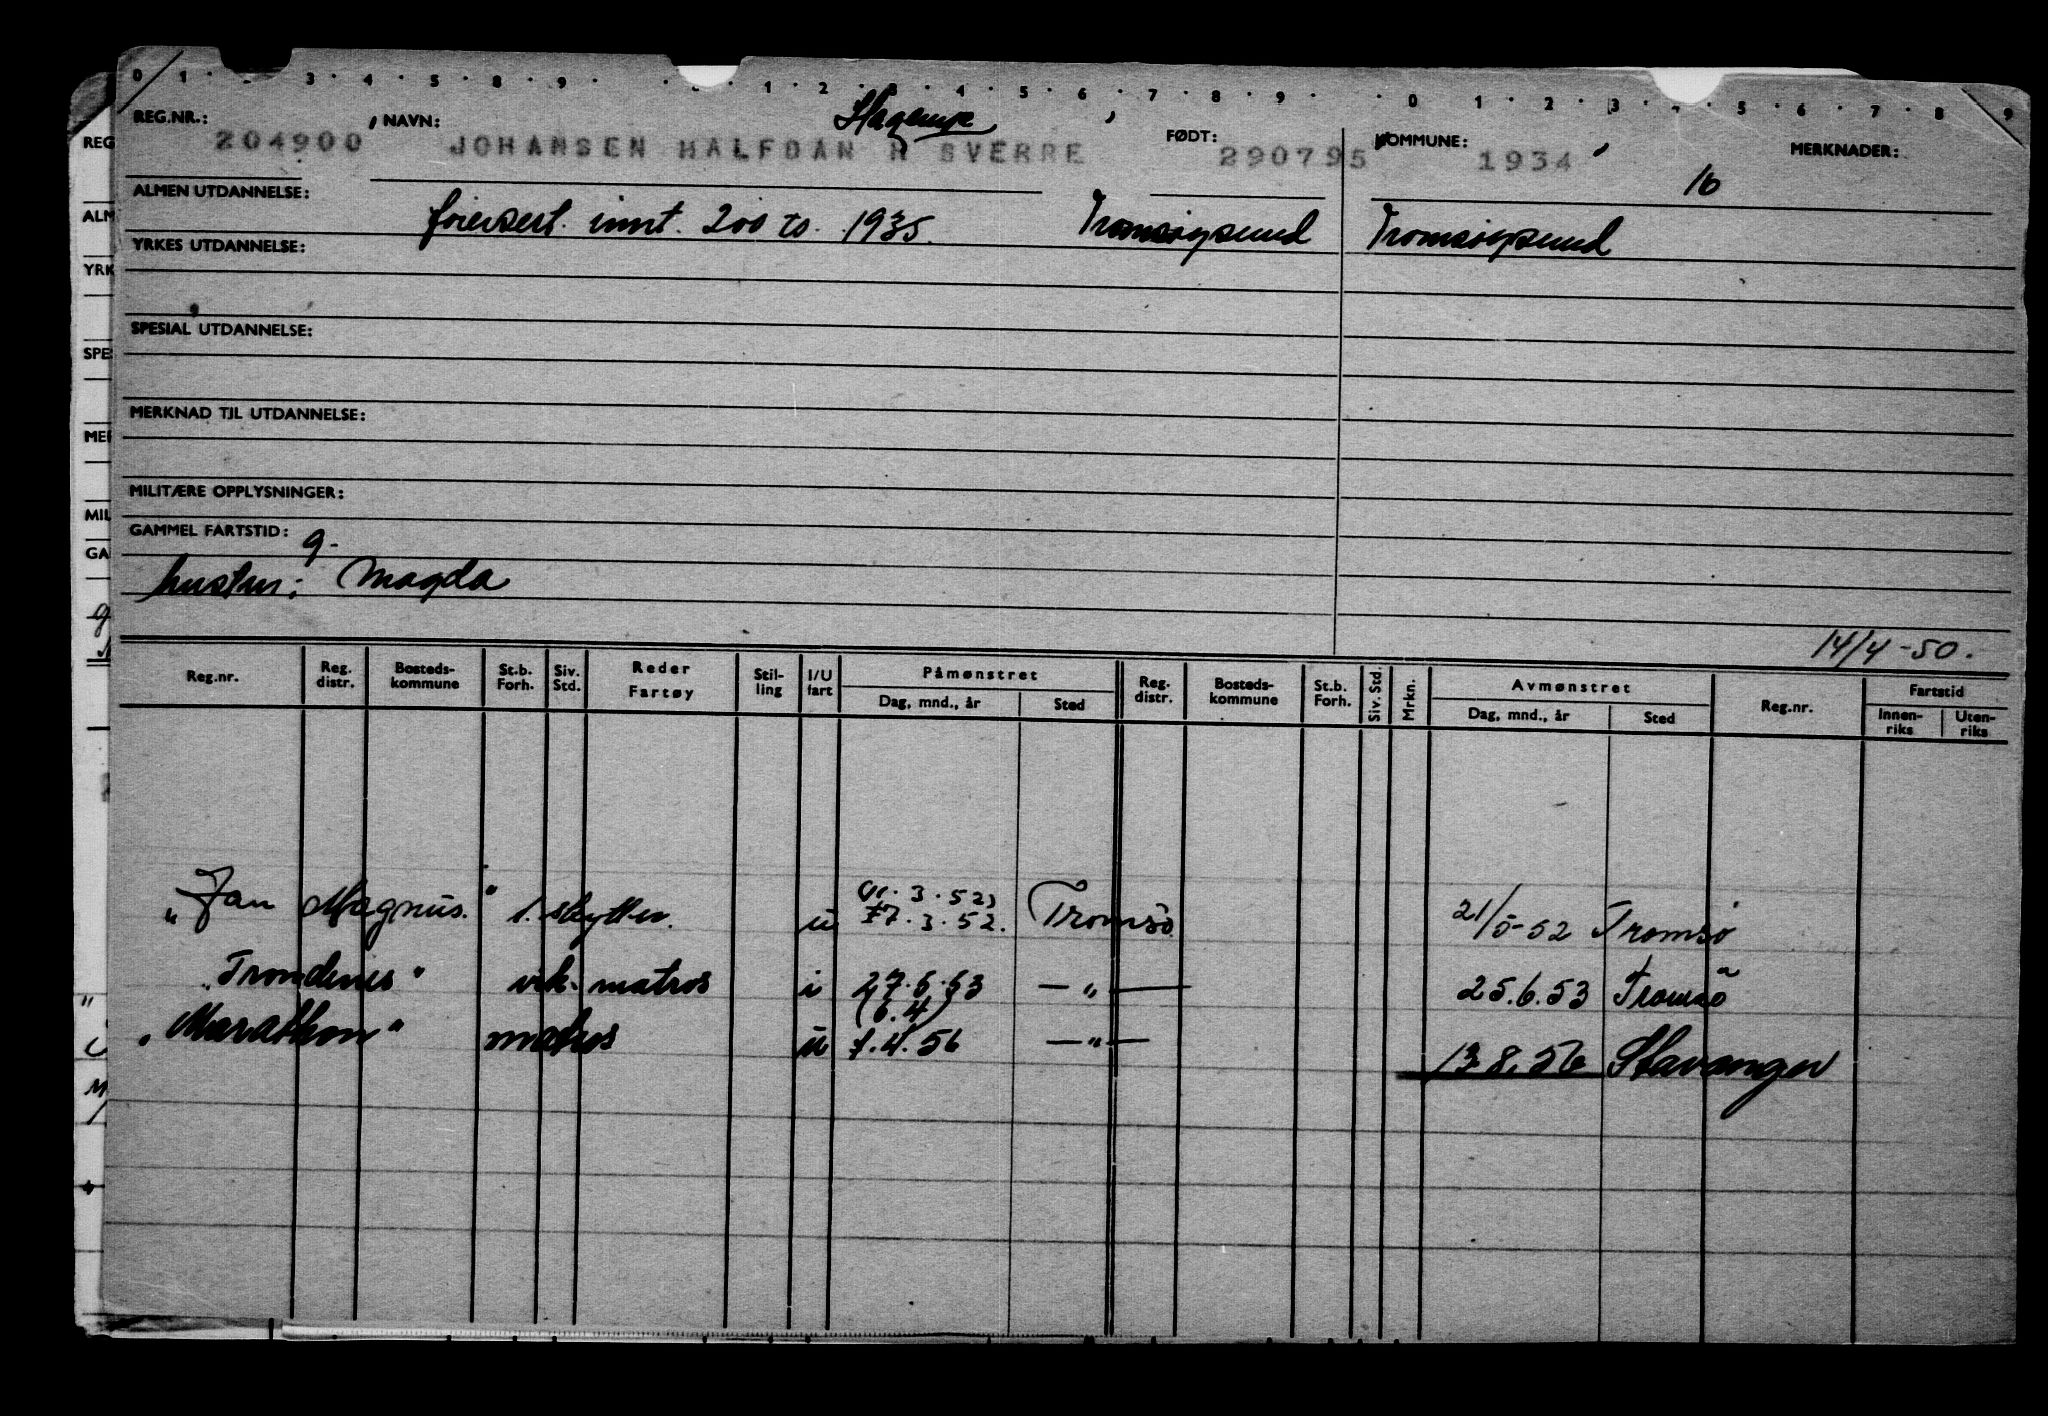 0 1 · 3 · 4 · 5 · 8 · 9 · · 1 · 2 · · 4 · 5 · 6 · 7 · 8 · 9 · · 0 1 · 2 · 3 · 5 · 6 · 7 · 8 9
REG.NR.: 204900 NAVN: JOHANSEN HALFDAN H SVERRE FØDT: 290795 KOMMUNE: 1934 MERKNADER:
16
ALMEN UTDANNELSE:
innt. 200 to. 1935. Tromsøysund Tromsøysund
YRKES UTDANNELSE:
SPESIAL UTDANNELSE:
MERKNAD TIL UTDANNELSE:
MILITÆRE OPPLYSNINGER:
GAMMEL FARTSTID: g.
hustru: Magda
14/4-50.
Reg.nr. Reg. distr. Bosteds-kommune St.b. Forh. Siv. Std. Reder Fartøy Stil-ling I/U fart Påmønstret Dag, mnd., år Sted Reg. distr. Bosteds-kommune St.b. Forh. Siv. Std. Mrkn. Avmønstret Dag, mnd., år Sted Reg.nr. Fartstid Innen-riks Uten-riks
"Jan Magnus." 1. skytter. u 3.52 17.3.52. Tromsø 21/5-52 Tromsø
"Trondenes" vik. matros i 27.6.53 —"— 25.6.53 Tromsø
(6.4)
"Marathon" matros u 7.4.56 —"— 13.8.56 Stavanger